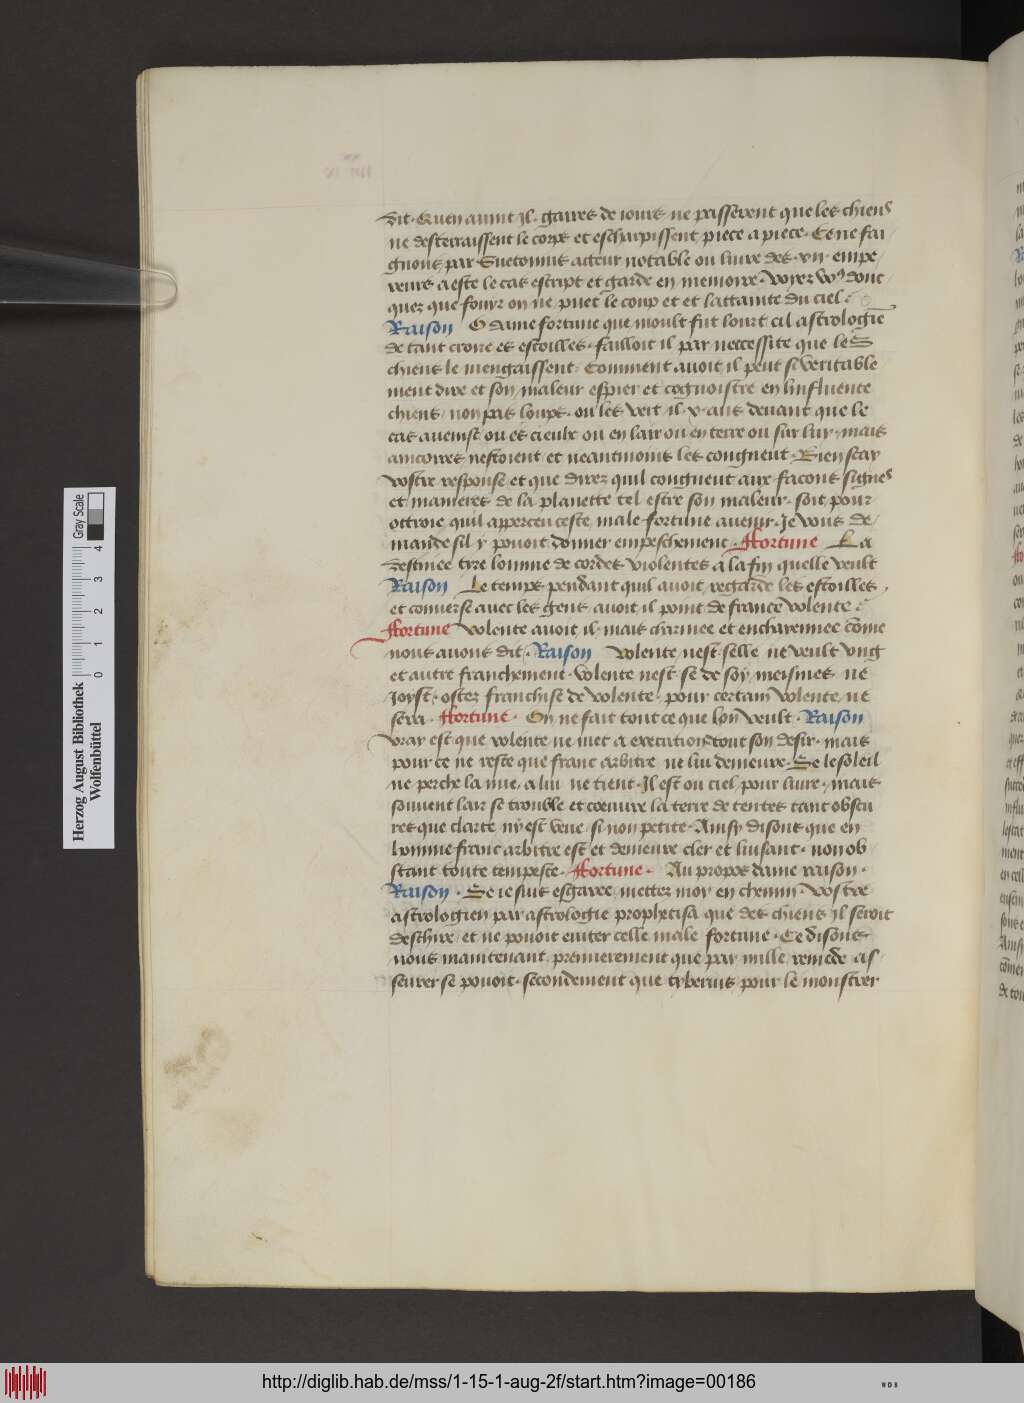 dit. Quen avint il. gaires de iours ne passerent que les chiens
ne desterraissent le corps et escharpissent piece a piece. Ce ne fai
gnons par Suetonius acteur notable ou livre des .vii. empe
reurs a este le cas escript et garde en memoire. Voyez vo9 donc
ques que fouyr on ne puet le coup et et lattainte du ciel
Raison O dame fortune que moult fut lourt cil astrologie
de tant croire es estoilles. failloit il par neccessite que les
chiens le mengaissent. Comment avoit il peut se veritable
ment dire et son maleur espier et cognoistre en linfluence
chiens. non pas loups. ou les veit il .x. ans devant que le
cas avenist ou es cieulx ou en lair ou en terre ou sur luy. mais
ancoires nestoient et neantmoins les congneut. Bien scay
vostre response et que direz quil congneut aux facons signes
et manieres de sa planette tel estre son maleur. soit pour
ottroie quil apperceu ceste male fortune avenir. Je vous de
mande sil y pouoit donner empeschement. Ffortune La
destinee tyre lomme de cordes violentes a la fin quelle veult
Raison Le temps pendant quil avoit regarde les estoilles
et converse avec les gens avoit il point de france volente
Ffortune Volente avoit il. mais charmee et encharennee come
nous avons dit. Raison Volente nest selle ne veult ung
et autre franchement. volente nest se de soy meismes ne
joyst. ostez franchise de volente. pour certain volente ne
sera. Ffortune. On ne fait tout ce que lon veult. Raison
vray est que volente ne met a execution tout son desir. mais
pour ce ne reste que franc arbitre ne lui demeure. Se le soleil
ne perche la nue. a lui ne tient. Il est ou ciel pour luire. mais
souvent lair se trouble et coeuvre la terre de tentes tant obscu
res que clarte ny est veue. si non petite. Ainsy disons que en
homme franc arbitre est et demeure cler et luisant. non ob
stant toute tempeste. Ffortune. Au propos dame raison.
Raison. Se ie suis esgaree mettez moy en chemin. Vostre
astrologien par astrologie prophetisa que des chiens il seroit
deschire. et ne pouoit eviter celle male fortune. Ce disons
nous maintenant. premierement que par mille remede as
seurer se pouoit. secondement que tyberius pour le monstrer
Herzog August Bibliothek
Wolfenbüttel
0 1 2 3 4
Gray Scale
http://diglib.hab.de/mss/1-15-1-aug-2f/start.htm?image=00186